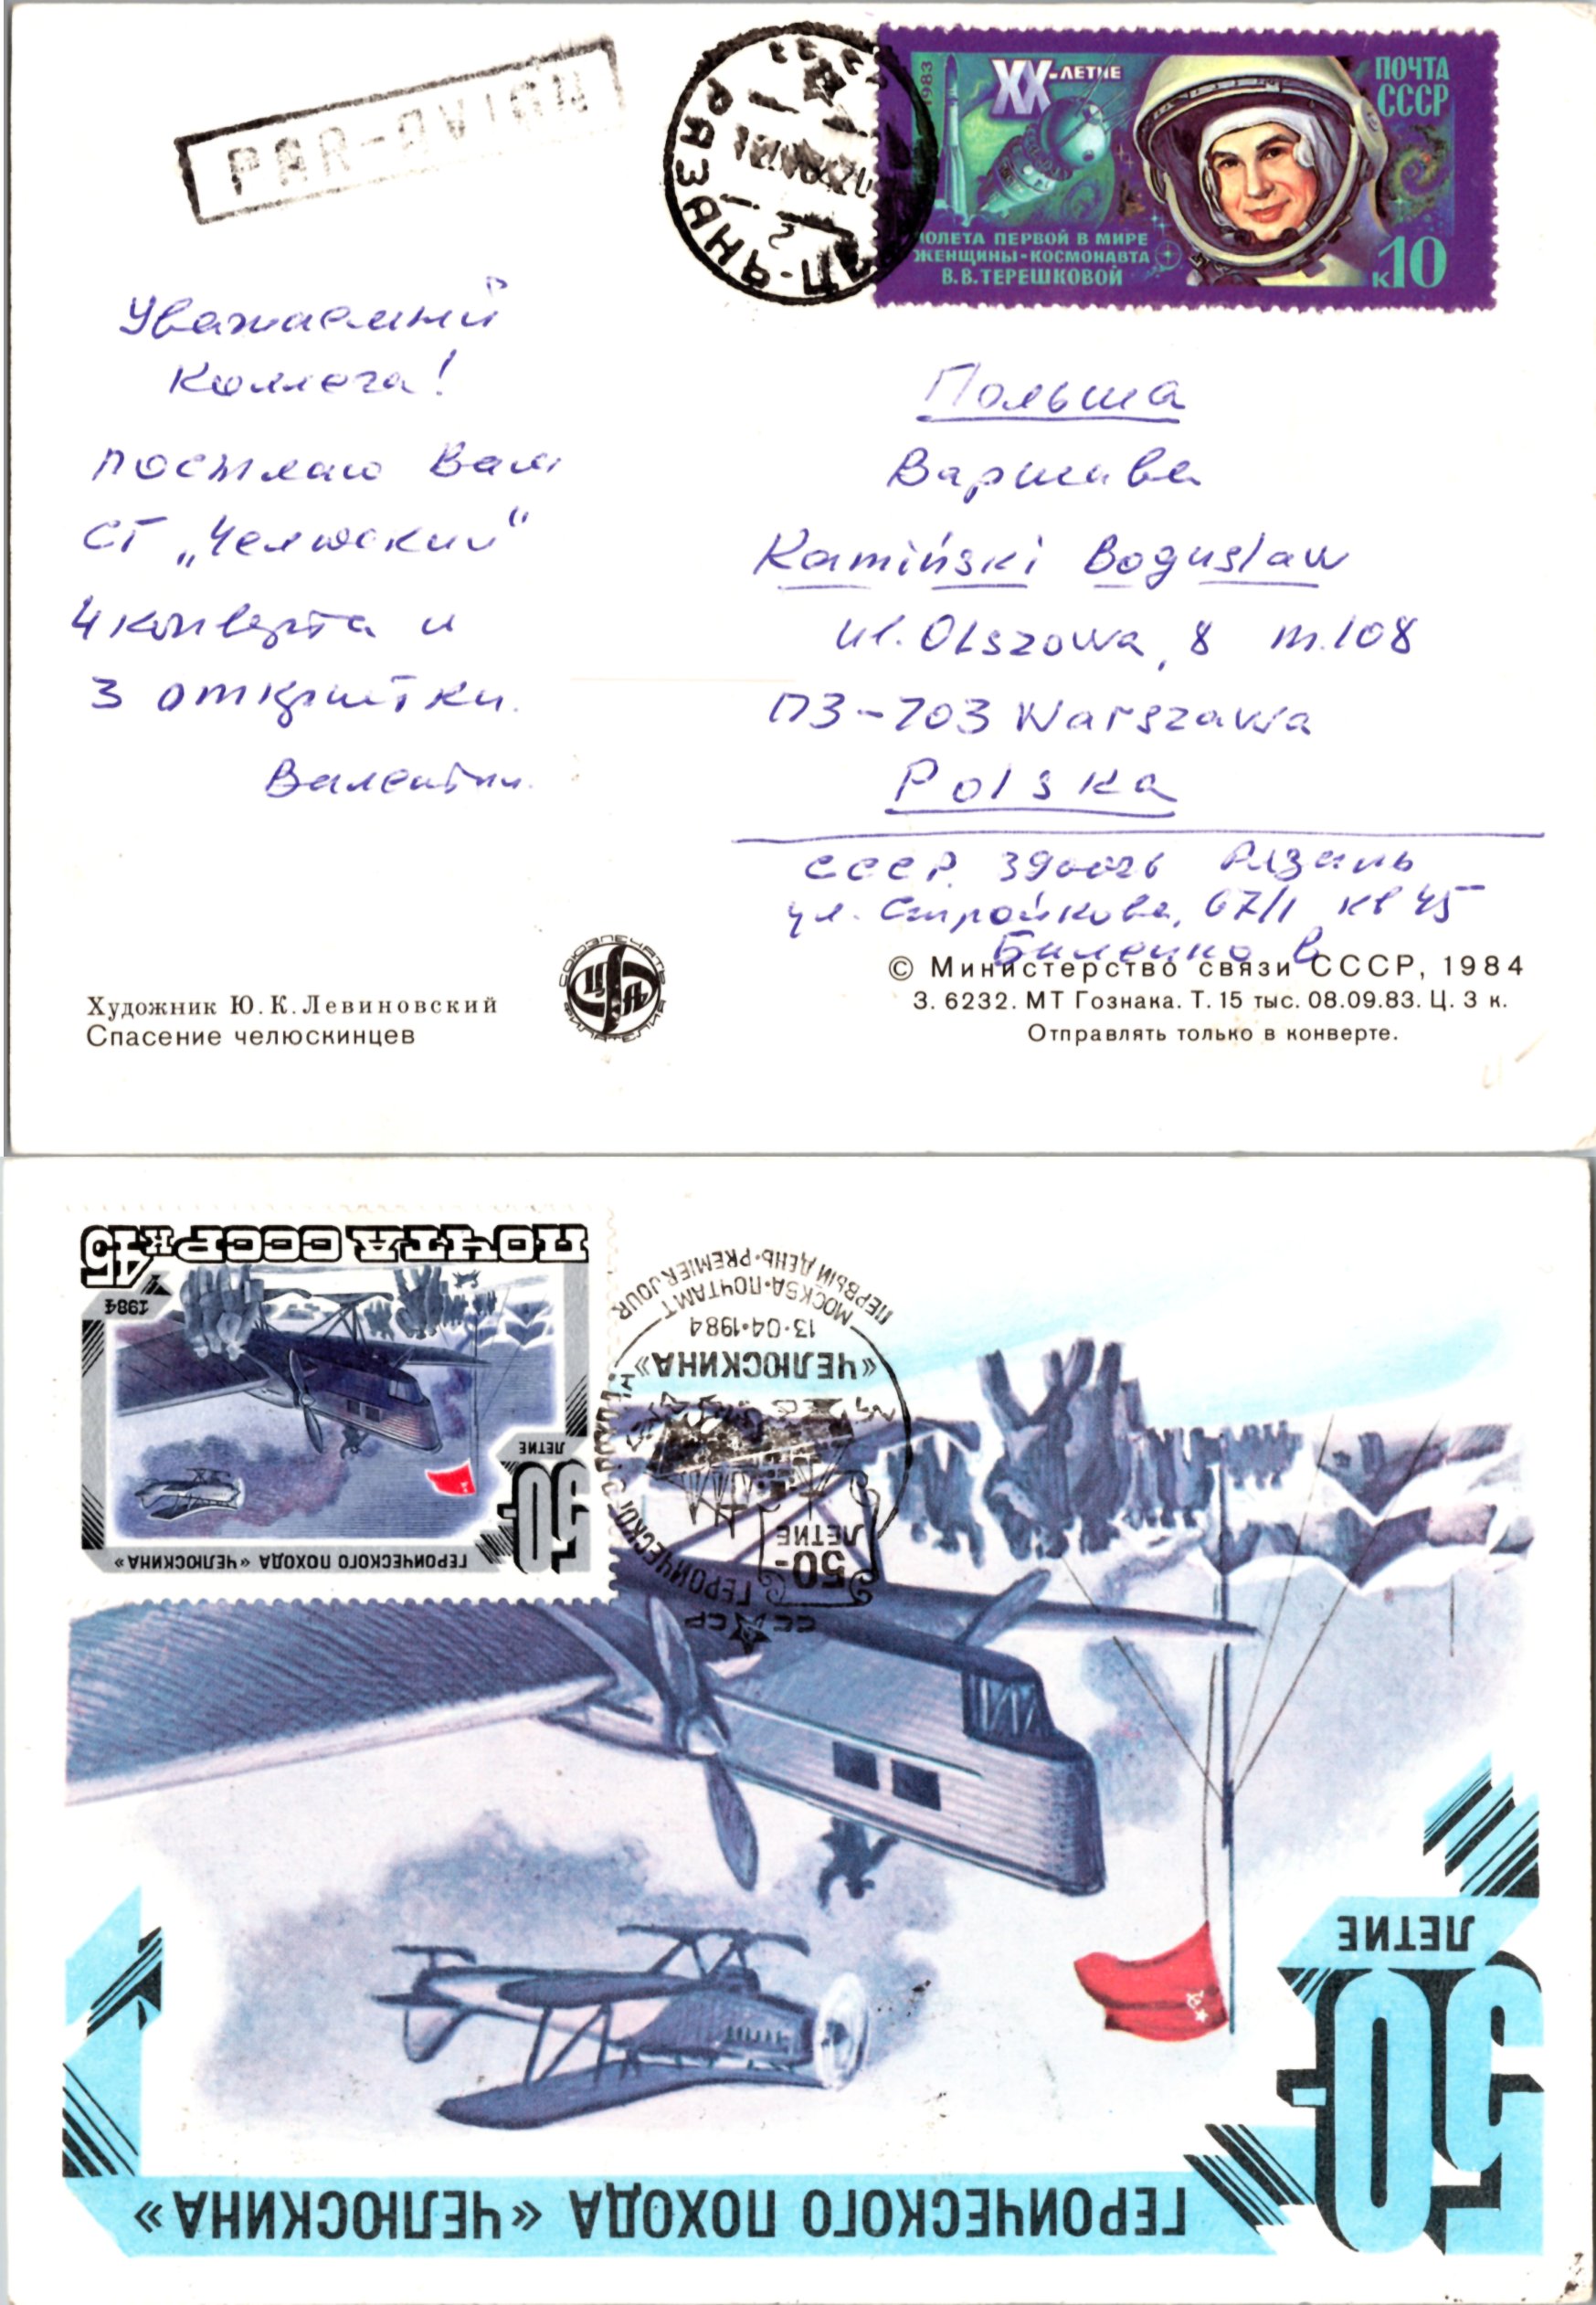 PAR-AVION
РЯЗАНЬ
1983
XX-ЛЕТИЕ
ПОЧТА
СССР
ПОЛЕТА ПЕРВОЙ В МИРЕ
ЖЕНЩИНЫ-КОСМОНАВТА
В.В.ТЕРЕШКОВОЙ
к10
Уважаемый
Коллега!
посылаю Вам
СГ „Челюскин“
4 конверта и
3 открытки.
Валентин.
Польша
Варшава
Kamiński Bogusław
ul. Olszowa, 8 m.108
03-703 Warszawa
Polska
СССР. 390026 Рязань
ул. Стройкова, 67/1 кв 45
Биленко В
СОЮЗПЕЧАТЬ
ЦФА
ФИЛАТЕЛИЯ
Художник Ю. К. Левиновский
Спасение челюскинцев
© Министерство связи СССР, 1984
З. 6232. МТ Гознака. Т. 15 тыс. 08.09.83. Ц. 3 к.
Отправлять только в конверте.
50-
ЛЕТИЕ
ГЕРОИЧЕСКОГО ПОХОДА «ЧЕЛЮСКИНА»
50-
ЛЕТИЕ
ГЕРОИЧЕСКОГО ПОХОДА «ЧЕЛЮСКИНА»
1984
ПОЧТА СССР к45
СССР
50-
ЛЕТИЕ
ГЕРОИЧЕСКОГО ПОХОДА
«ЧЕЛЮСКИНА»
13·04·1984
МОСКВА·ПОЧТАМТ
ПЕРВЫЙ ДЕНЬ·PREMIER JOUR